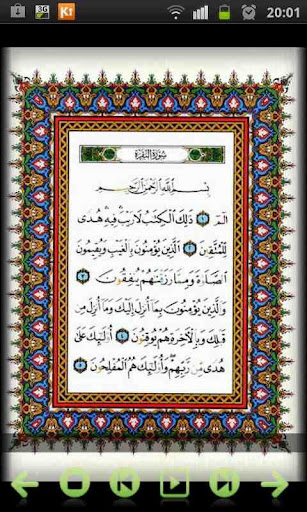 3G
K!
20:01
سُورَةُ البَقَرَة
بِسْمِ اللَّهِ الرَّحْمَٰنِ الرَّحِيمِ
الٓمٓ ١ ذَٰلِكَ الْكِتَٰبُ لَا رَيْبَ فِيهِ هُدًى
لِّلْمُتَّقِينَ ٢ الَّذِينَ يُؤْمِنُونَ بِالْغَيْبِ وَيُقِيمُونَ
الصَّلَوٰةَ وَمِمَّا رَزَقْنَٰهُمْ يُنفِقُونَ ٣
وَالَّذِينَ يُؤْمِنُونَ بِمَا أُنزِلَ إِلَيْكَ وَمَا أُنزِلَ مِن
قَبْلِكَ وَبِالْآخِرَةِ هُمْ يُوقِنُونَ ٤ أُولَٰئِكَ عَلَىٰ
هُدًى مِّن رَّبِّهِمْ وَأُولَٰئِكَ هُمُ الْمُفْلِحُونَ ٥